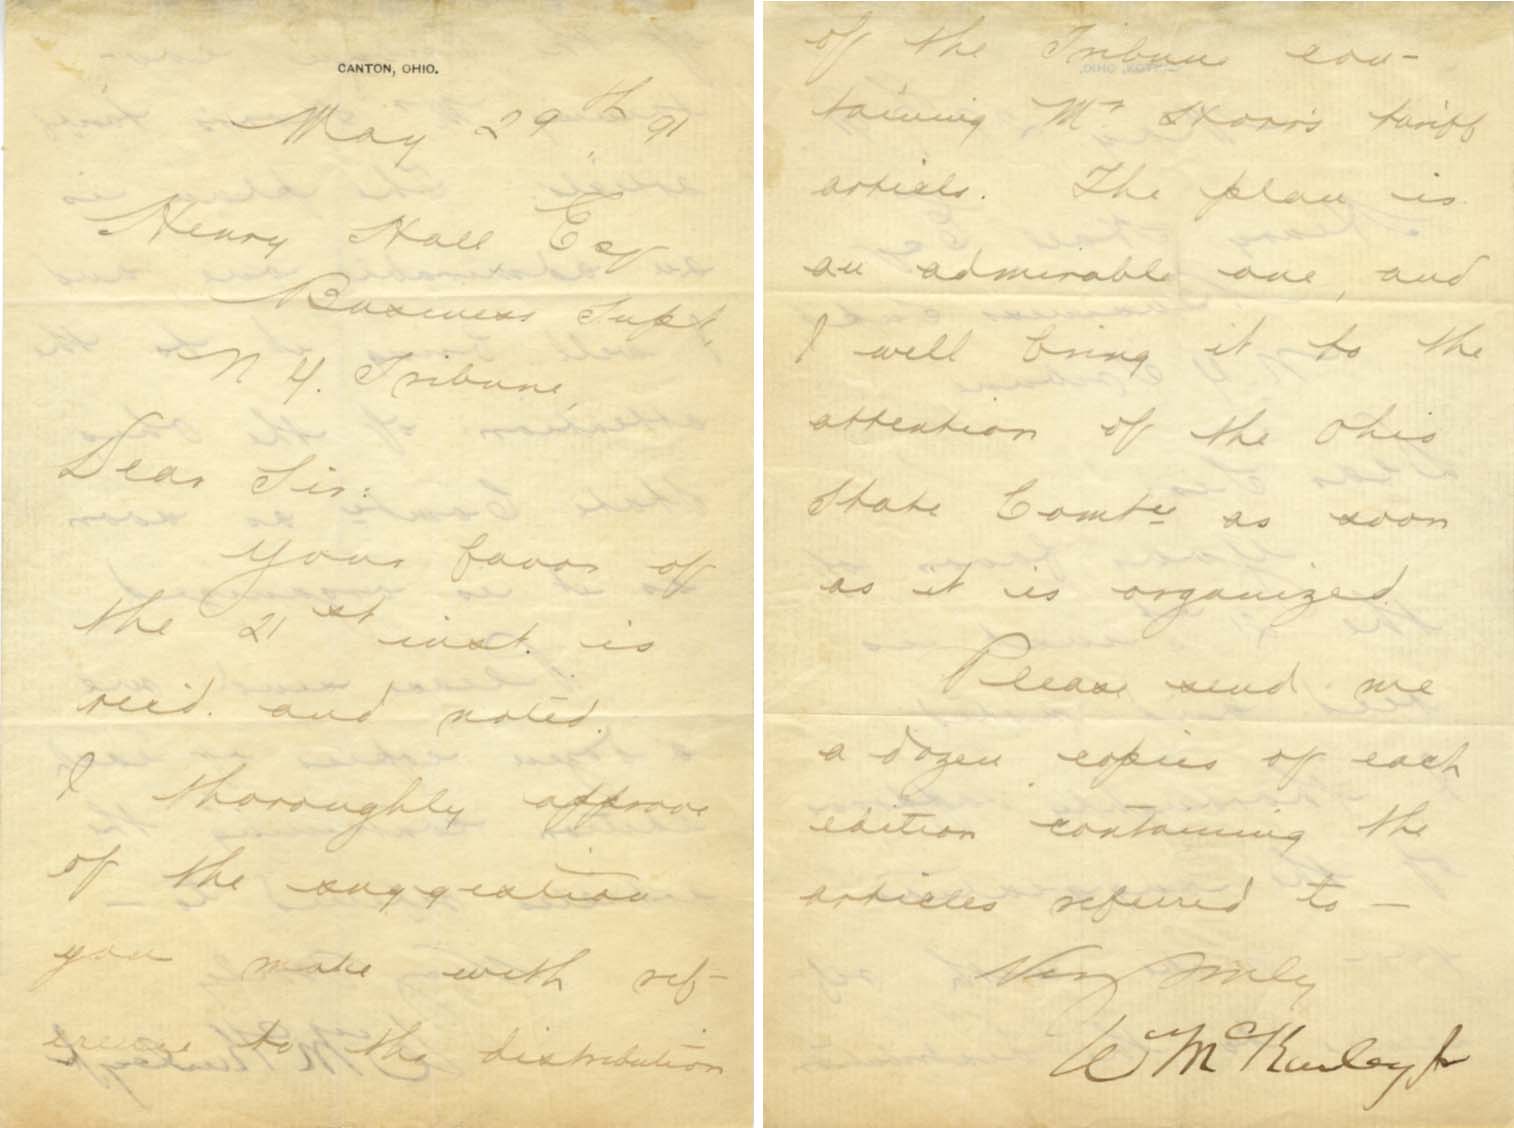 CANTON, OHIO.
May 29th, 91
Henry Hall Esq
Business Supt,
N Y. Tribune,
Dear Sir:
Your favor of
the 21st inst. is
rec'd. and noted.
I thoroughly approve
of the suggestion
you make with ref-
erence to the distribution
of the Tribune con-
taining Mr Storr's tariff
articls. The plan is
an admirable one, and
I will bring it to the
attention of the Ohio
State Comtee as soon
as it is organized.
Please send me
a dozen copies of each
edition containing the
articles referred to —
Very Truly
Wm McKinley Jr